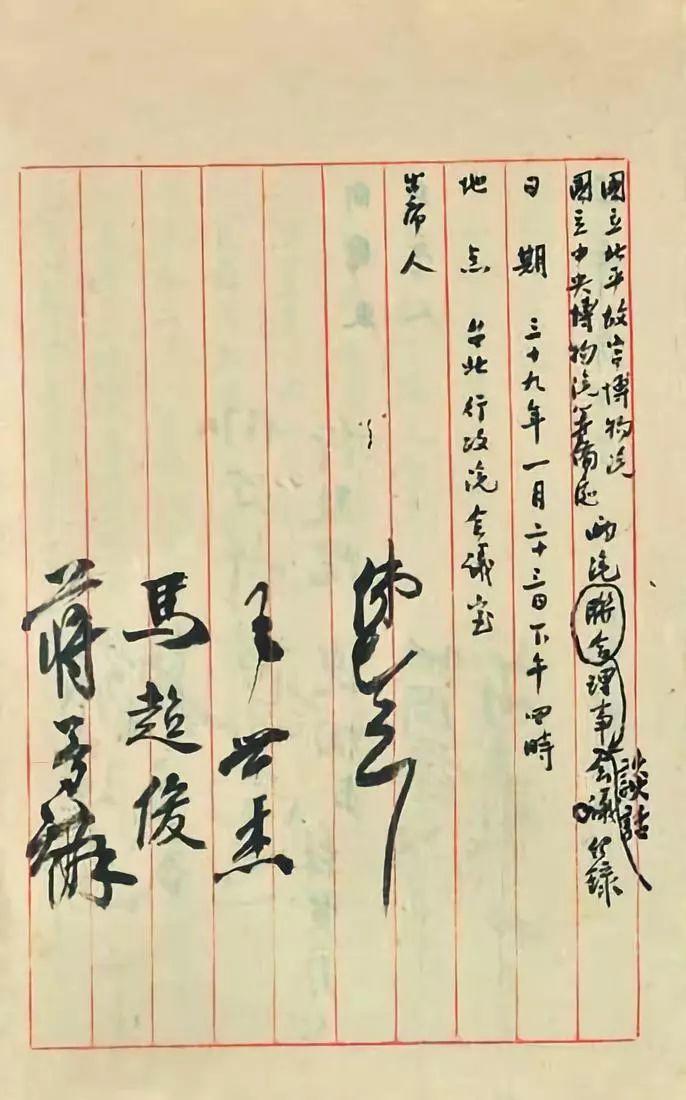 國立北平故宮博物院
國立中央博物院籌備处
兩院聯合理事会議紀錄
談話
日期 三十九年一月二十三日下午四時
地点 台北行政院会議室
出席人
王世杰
馬超俊
蔣夢麟